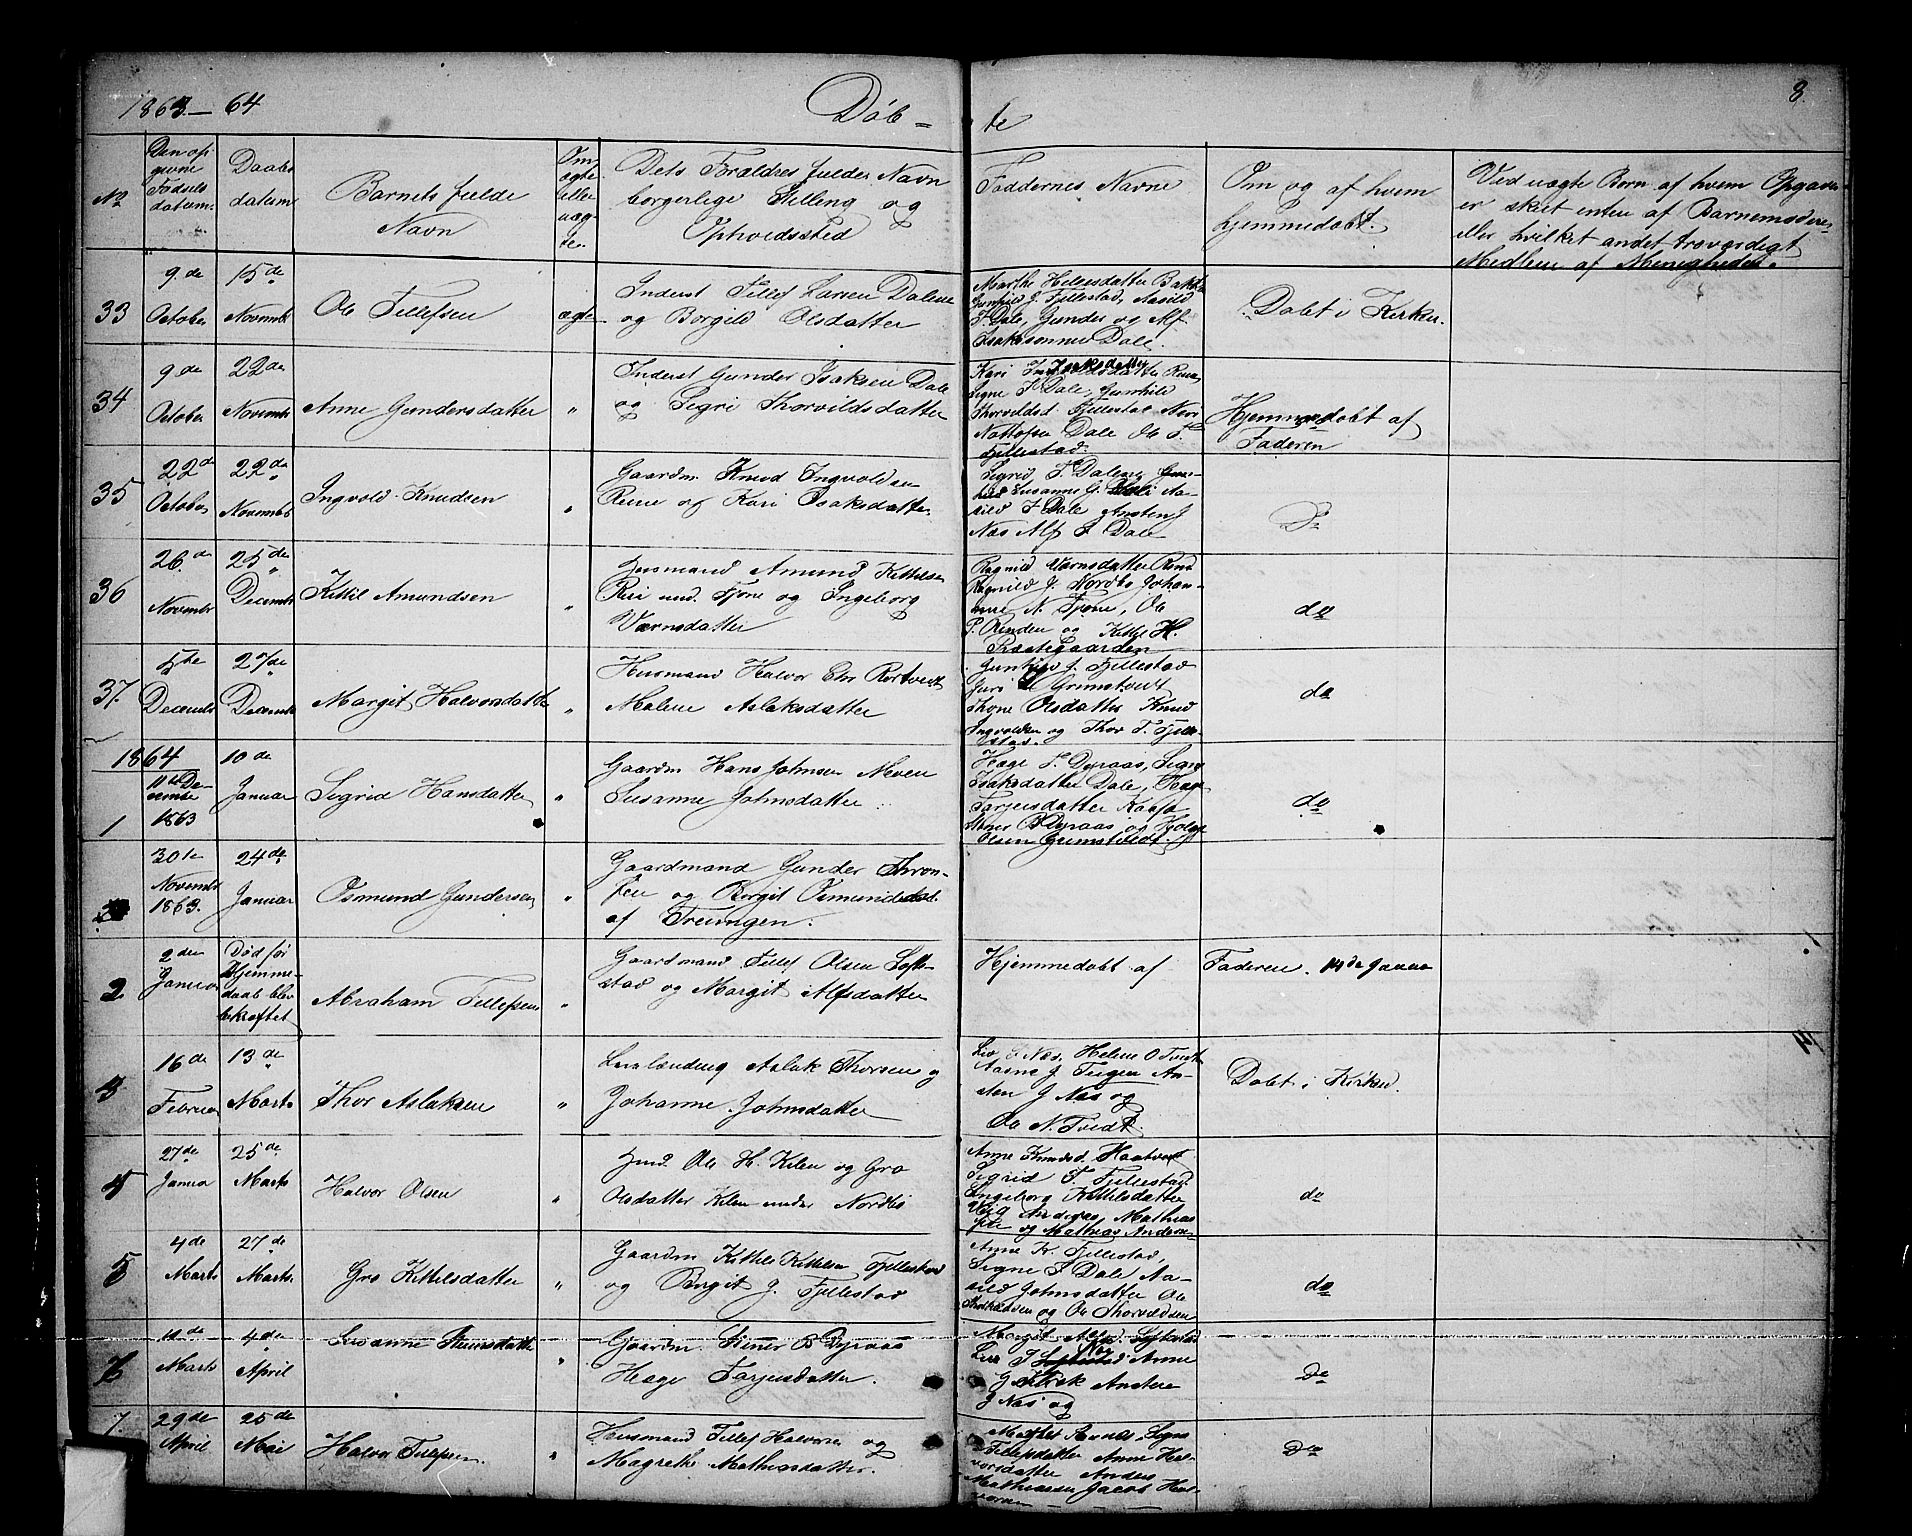 1863 — 64
Døb =
te
8.
No
Den op
givne
Fødsels
datum.
Daabs
datum
Barnets fulde
Navn
Om
ægte
eller
uæg-
te.
Dets Forældres fulde Navn
borgerlige Stilling og
Opholdssted
Faddernes Navne
Om og af hvem
hjemmedøbt.
Ved uægte Børn af hvem Opgaven
er skeet enten af Barnemoderen
eller hvilket andet troværdigt
Medlem af Menigheden.
33
9.de
October
15de
Novembr
Ole Tellefsen
ægte
Inderst Tellef Larsen Dalene
og Borgild Olsdatter
Marthe Helgesdatter Bakk
Gunhild J. Fjellestad, Aasild
I Dale, Gunder og Alf
Isaksønner Dale.
Døbt i Kirken.
34
9de
October
22de
Novembr
Anne Gundersdatter
"
Inderst Gunder Isaksen Dale
og Segri Thorvildsdatter
Kari Isaksdatter
Signe I Dale, Gunhild
Thorvildsd Fjellestad
Dale Ole T.
Fjellestad
Hjemmedøbt af
Faderen
35
22d
October
22de
Novembr
Ingvold Knudsen
"
Gaardm Knud Ingvoldsen
Rene og Kari Isaksdatter
Sigrid I Dalen,
Susanne G. Aa-
sild I Dale Ansten J
Næs Alf I Dale
Do
36
26.de
Novembr
25de
Decembr
Kittil Amundsen
"
Husmand Amund Kittilsen
Rui und. Tjone og Ingeborg
Værnsdatter
Ragnild Værnsdatter
Ragnild J. Nordbø Johan-
N. Tjone, Ole
P. Rinden og Kittil H.
Præstegaarden
do
37.
5te
Decembr
27de
Decembr
Margit Halvorsdatter
"
Husmand Halvor Chr Rørtvedt
Malene Aslaksdatter
Gunhild J. Fjellestad
Guri Grimstvedt
Thone Olsdatter Knud
Ingvoldsen og Thor T. Fjelle-
stad.
do
1864
1
11te De-
cembr
1863
10de
Januar
Sigrid Hansdatter
"
Gaardm Hans Johnsen Neven
Susanne Johnsdatter
Hæge T. Dyraas, Signe
Isaksdatter Dale, Hæge
Tarjeisdatter Kaasa
Stener B Dyraas og Hjelge
Olsen Grimstvedt.
do
30te
Novembr
1863.
24de
Januar
Osmund Gundersen
"
Gaardmand Gunder Thron-
sen og Birgit Osmundsdat.
af Treungen.
2
2den
Januar
Død før
Hjemme-
daab blev
bekræftet
Abraham Tellefsen
"
Gaardmand Tellef Olsen Lofte-
stad og Margit Alfsdatter
Hjemmedøbt af
Faderen. 14de Januar
3
16de
Februar
13de
Marts
Thor Aslaksen
"
Aslak Thorsen og
Johanne Johnsdatter
Liv J Næs, Helene O Tvedt
Aasne J. Teigen An-
sten J Næs og
Ole N. Tvedt.
Døbt i Kirken.
4
27de
Januar
25de
Marts
Halvor Olsen
"
Husd. Ole H. Kilen og Gro
Olsdatter Kilen under Nordbø
Anne Knudsd. Haatvedt
Sigrid T. Fjellestad
Ingeborg Kittilsdatter
Andreas Mathias
og Mathias Andersen
do
5
4de
Marts
27de
Marts.
Gro Kittilsdatter
"
Gaardm Kittil Kittilsen Fjellestad
og Birgit J. Fjellestad
Anne K. Fjellestad,
Signe I Dale Aa-
sild Johnsdatter Ole
og Ole Thorvildsen
do
11de
Marts
4de
April
Susanne Stenersdatter
"
Gaardm. Stener B Dyraas
Hæge Tarjeisdatter.
Margit Alfsd. Loftestad
Liv J Næs Anne
J Ansten
J Næs og
Do
7.
29de
April
25de
Mai
Halvor Tellefsen.
"
Husmand Tellef Halvorsen og
Magrethe Mathiasdatter.
Signe
Tellefsdatter Anne Hal-
vorsdatter Anders
Mathiassen Jacob Hal-
vorsen
Do